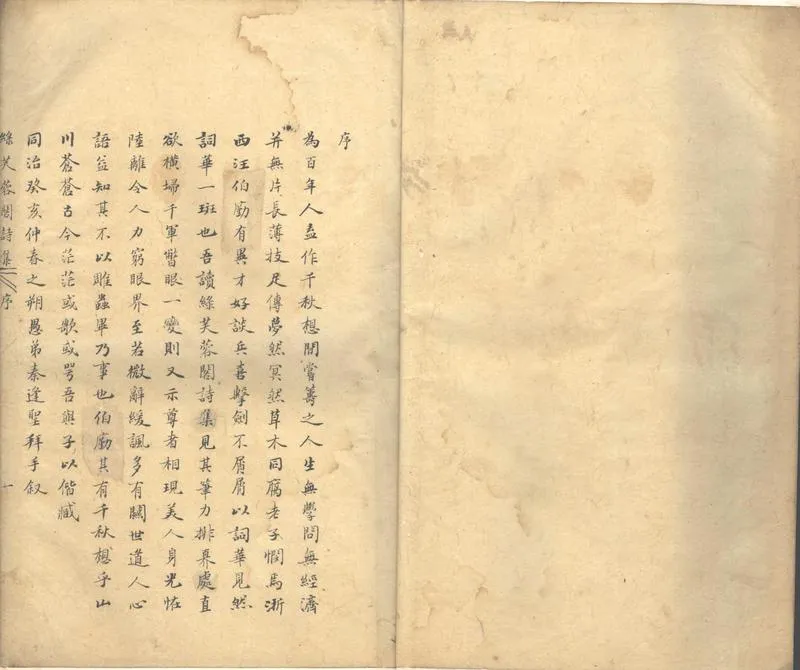 序
為百年人盍作千秋想間嘗籌之人生無學問無經濟
并無片長薄技足傳夢然冥然草木同腐老子憫焉浙
西汪伯勛有異才好談兵喜擊劍不屑屑以詞華見然
詞華一斑也吾讀綠芙蓉閣詩集見其筆力排奡處直
欲橫埽千軍瞥眼一變則又示尊者相現美人身光怪
陸離令人力窮眼界至若微辭緩諷多有關世道人心
語益知其不以雕蟲畢乃事也伯勛其有千秋想乎山
川蒼蒼古今茫茫或歌或咢吾與子以偕臧
同治癸亥仲春之朔愚弟秦逢聖拜手叙
綠芙蓉閣詩集 序 一